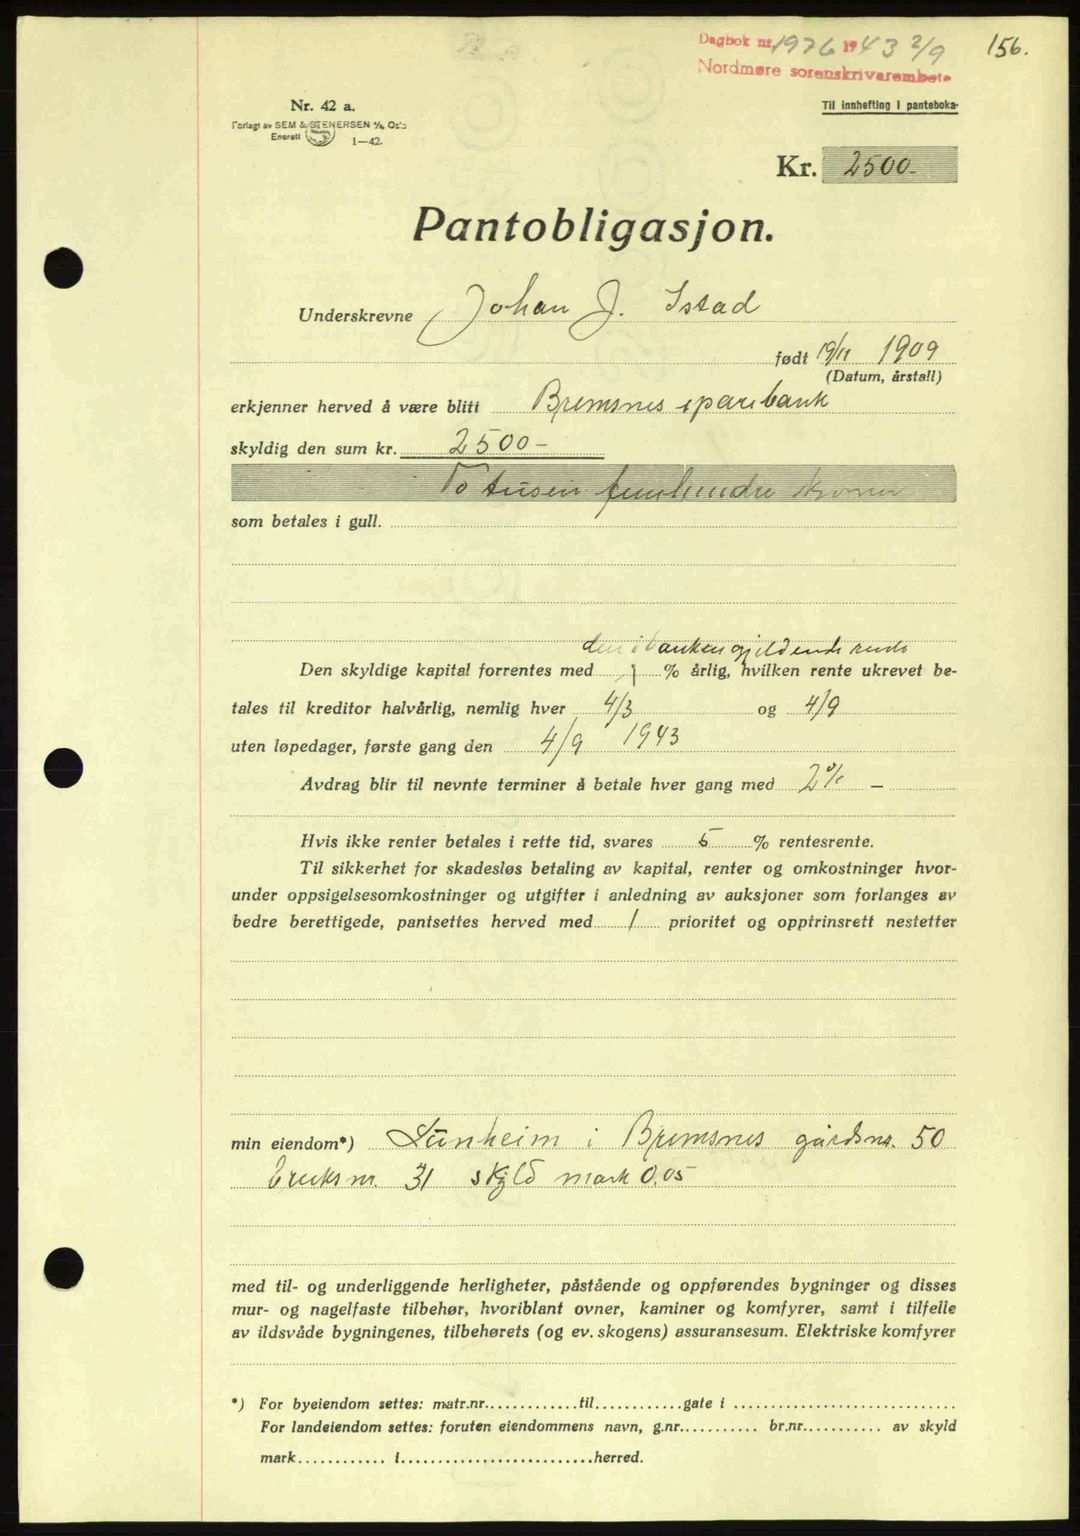 Dagbok nr. 1976 1943 2/9
156.
Nordmøre sorenskrivarembete
Nr. 42 a.
Til innhefting i panteboka.
Forlagt av SEM & STENERSEN A/S, Oslo
Enerett 1—42.
Kr. 2500-
Pantobligasjon.
Underskrevne Johan J. Istad
født 19/11 1909
(Datum, årstall)
erkjenner herved å være blitt Bremsnes sparebank
skyldig den sum kr. 2500-
To tusen femhundre kroner
som betales i gull.
den i banken gjeldende rente
Den skyldige kapital forrentes med % årlig, hvilken rente ukrevet be-
tales til kreditor halvårlig, nemlig hver 4/3 og 4/9
uten løpedager, første gang den 4/9 1943
Avdrag blir til nevnte terminer å betale hver gang med 2% —
Hvis ikke renter betales i rette tid, svares 5 % rentesrente.
Til sikkerhet for skadesløs betaling av kapital, renter og omkostninger hvor-
under oppsigelsesomkostninger og utgifter i anledning av auksjoner som forlanges av
bedre berettigede, pantsettes herved med 1 prioritet og opptrinsrett nestetter
min eiendom*) Lunheim i Bremsnes gårdsnr. 50
bruksnr. 31 skyld mark 0,05
med til- og underliggende herligheter, påstående og oppførendes bygninger og disses
mur- og nagelfaste tilbehør, hvoriblant ovner, kaminer og komfyrer, samt i tilfelle
av ildsvåde bygningenes, tilbehørets (og ev. skogens) assuransesum. Elektriske komfyrer
*) For byeiendom settes: matr.nr.............til............gate i ..............................
For landeiendom settes: foruten eiendommens navn, g.nr........... br.nr........... av skyld
mark............ i............................herred.